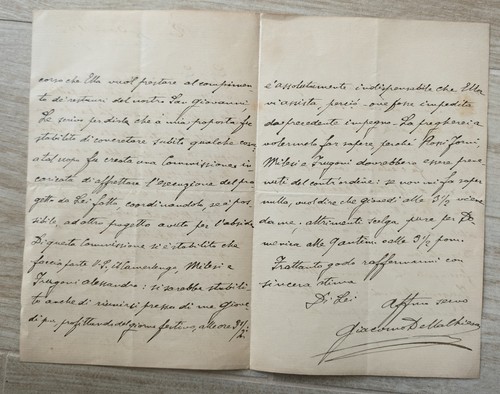 corso che Ella vuol prestare al compimen-
to dei restauri del nostro San Giovanni.
Le scrivo per dirle che a mia proposta fu
stabilito di concretare subito qualche cosa,
a tal scopo fu creata una Commissione in-
caricata di affrettare l'esecuzione del pro-
getto da Lei fatto coordinandolo, se è pos-
sibile, ad altro progetto avuto per l'abside
Di questa Commissione si è stabilito che
faccia parte V.S., il Camerlengo, Milesi e
Frugoni Alessandro: si sarebbe stabili-
to anche di riunirsi presso di me giove-
dì pv, profittando del giorno festivo, alle ore 3 1/2.
è assolutamente indispensabile che Ella
vi assista, perciò ove fosse impedito
da precedente impegno La pregherei a
volermelo far sapere perché
Milesi e Frugoni dovrebbero essere preve-
nuti del contrordine: se non mi fa saper
nulla, vuol dire che giovedì alle 3 1/2 viene
da me, altrimenti scelga pure per Do-
menica alle 3 1/2 pom.
Frattanto godo raffermarmi con
sincera stima
Di Lei
Affmo servo
Giacomo